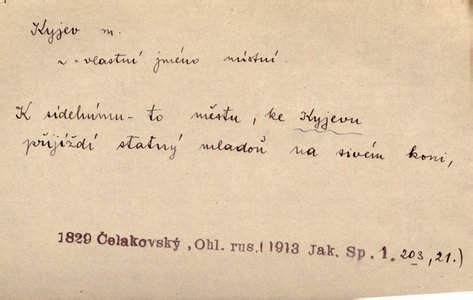 Kyjev m.
~ - vlastní jméno místní.
K sídelnímu - to městu, ke Kyjevu
přijíždí statný mladoň na sivém koni,
1829 Čelakovský, Ohl. rus. (1913 Jak. Sp. 1. 203, 21.)